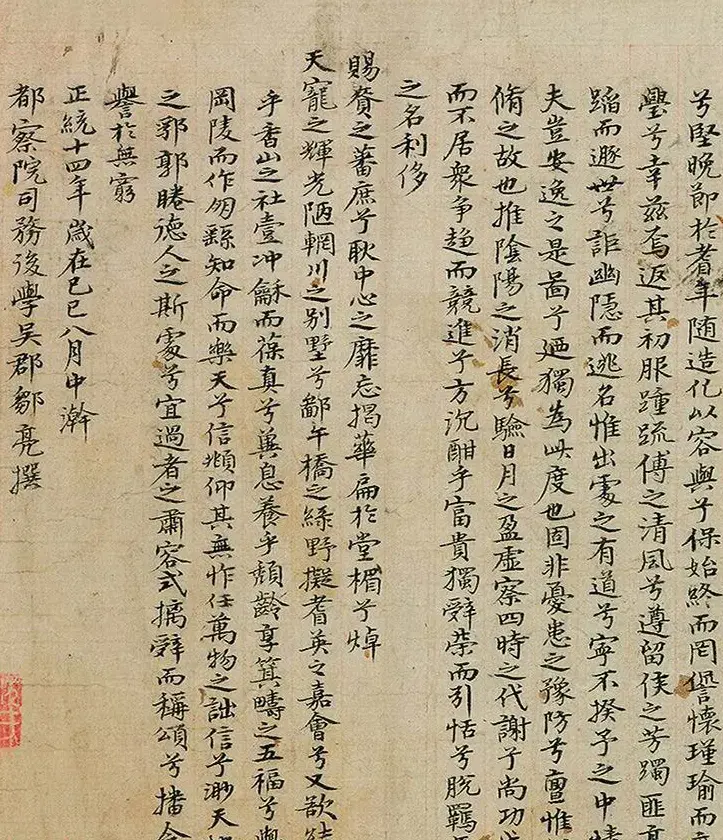 兮堅晚節於耆年随造化以容與兮保始終而罔愆懷瑾瑜而
璺兮幸茲焉返其初服踵疏傅之清風兮遵留侯之芳躅匪
蹈而遯世兮詎幽隱而逃名惟出處之有道兮寧不揆予之中情
夫豈安逸之是啚兮廼獨為此度也固非憂患之豫防兮亶惟
脩之故也推陰陽之消長兮驗日月之盈虛察四時之代謝兮尚功
而不居衆争趋而競進兮方沉酣乎富貴獨辭榮而引恬兮脫羈
之名利侈
賜賚之蕃庶兮耿中心之靡忘揭華扁於堂楣兮焯
天寵之輝光陋輞川之别墅兮鄙午橋之綠野擬耆英之嘉會兮又欲結
乎香山之社壹冲龢而葆真兮兾息養乎頹齡享箕疇之五福兮與
岡陵而作朋繇知命而樂天兮信頫仰其無怍任萬物之詘信兮渺天
之郛郭睠德人之斯處兮宜過者之肅容式摛辭而稱頌兮播令
譽於無窮
正統十四年歲在己巳八月中澣
都察院司務後學吳郡鄒亮撰